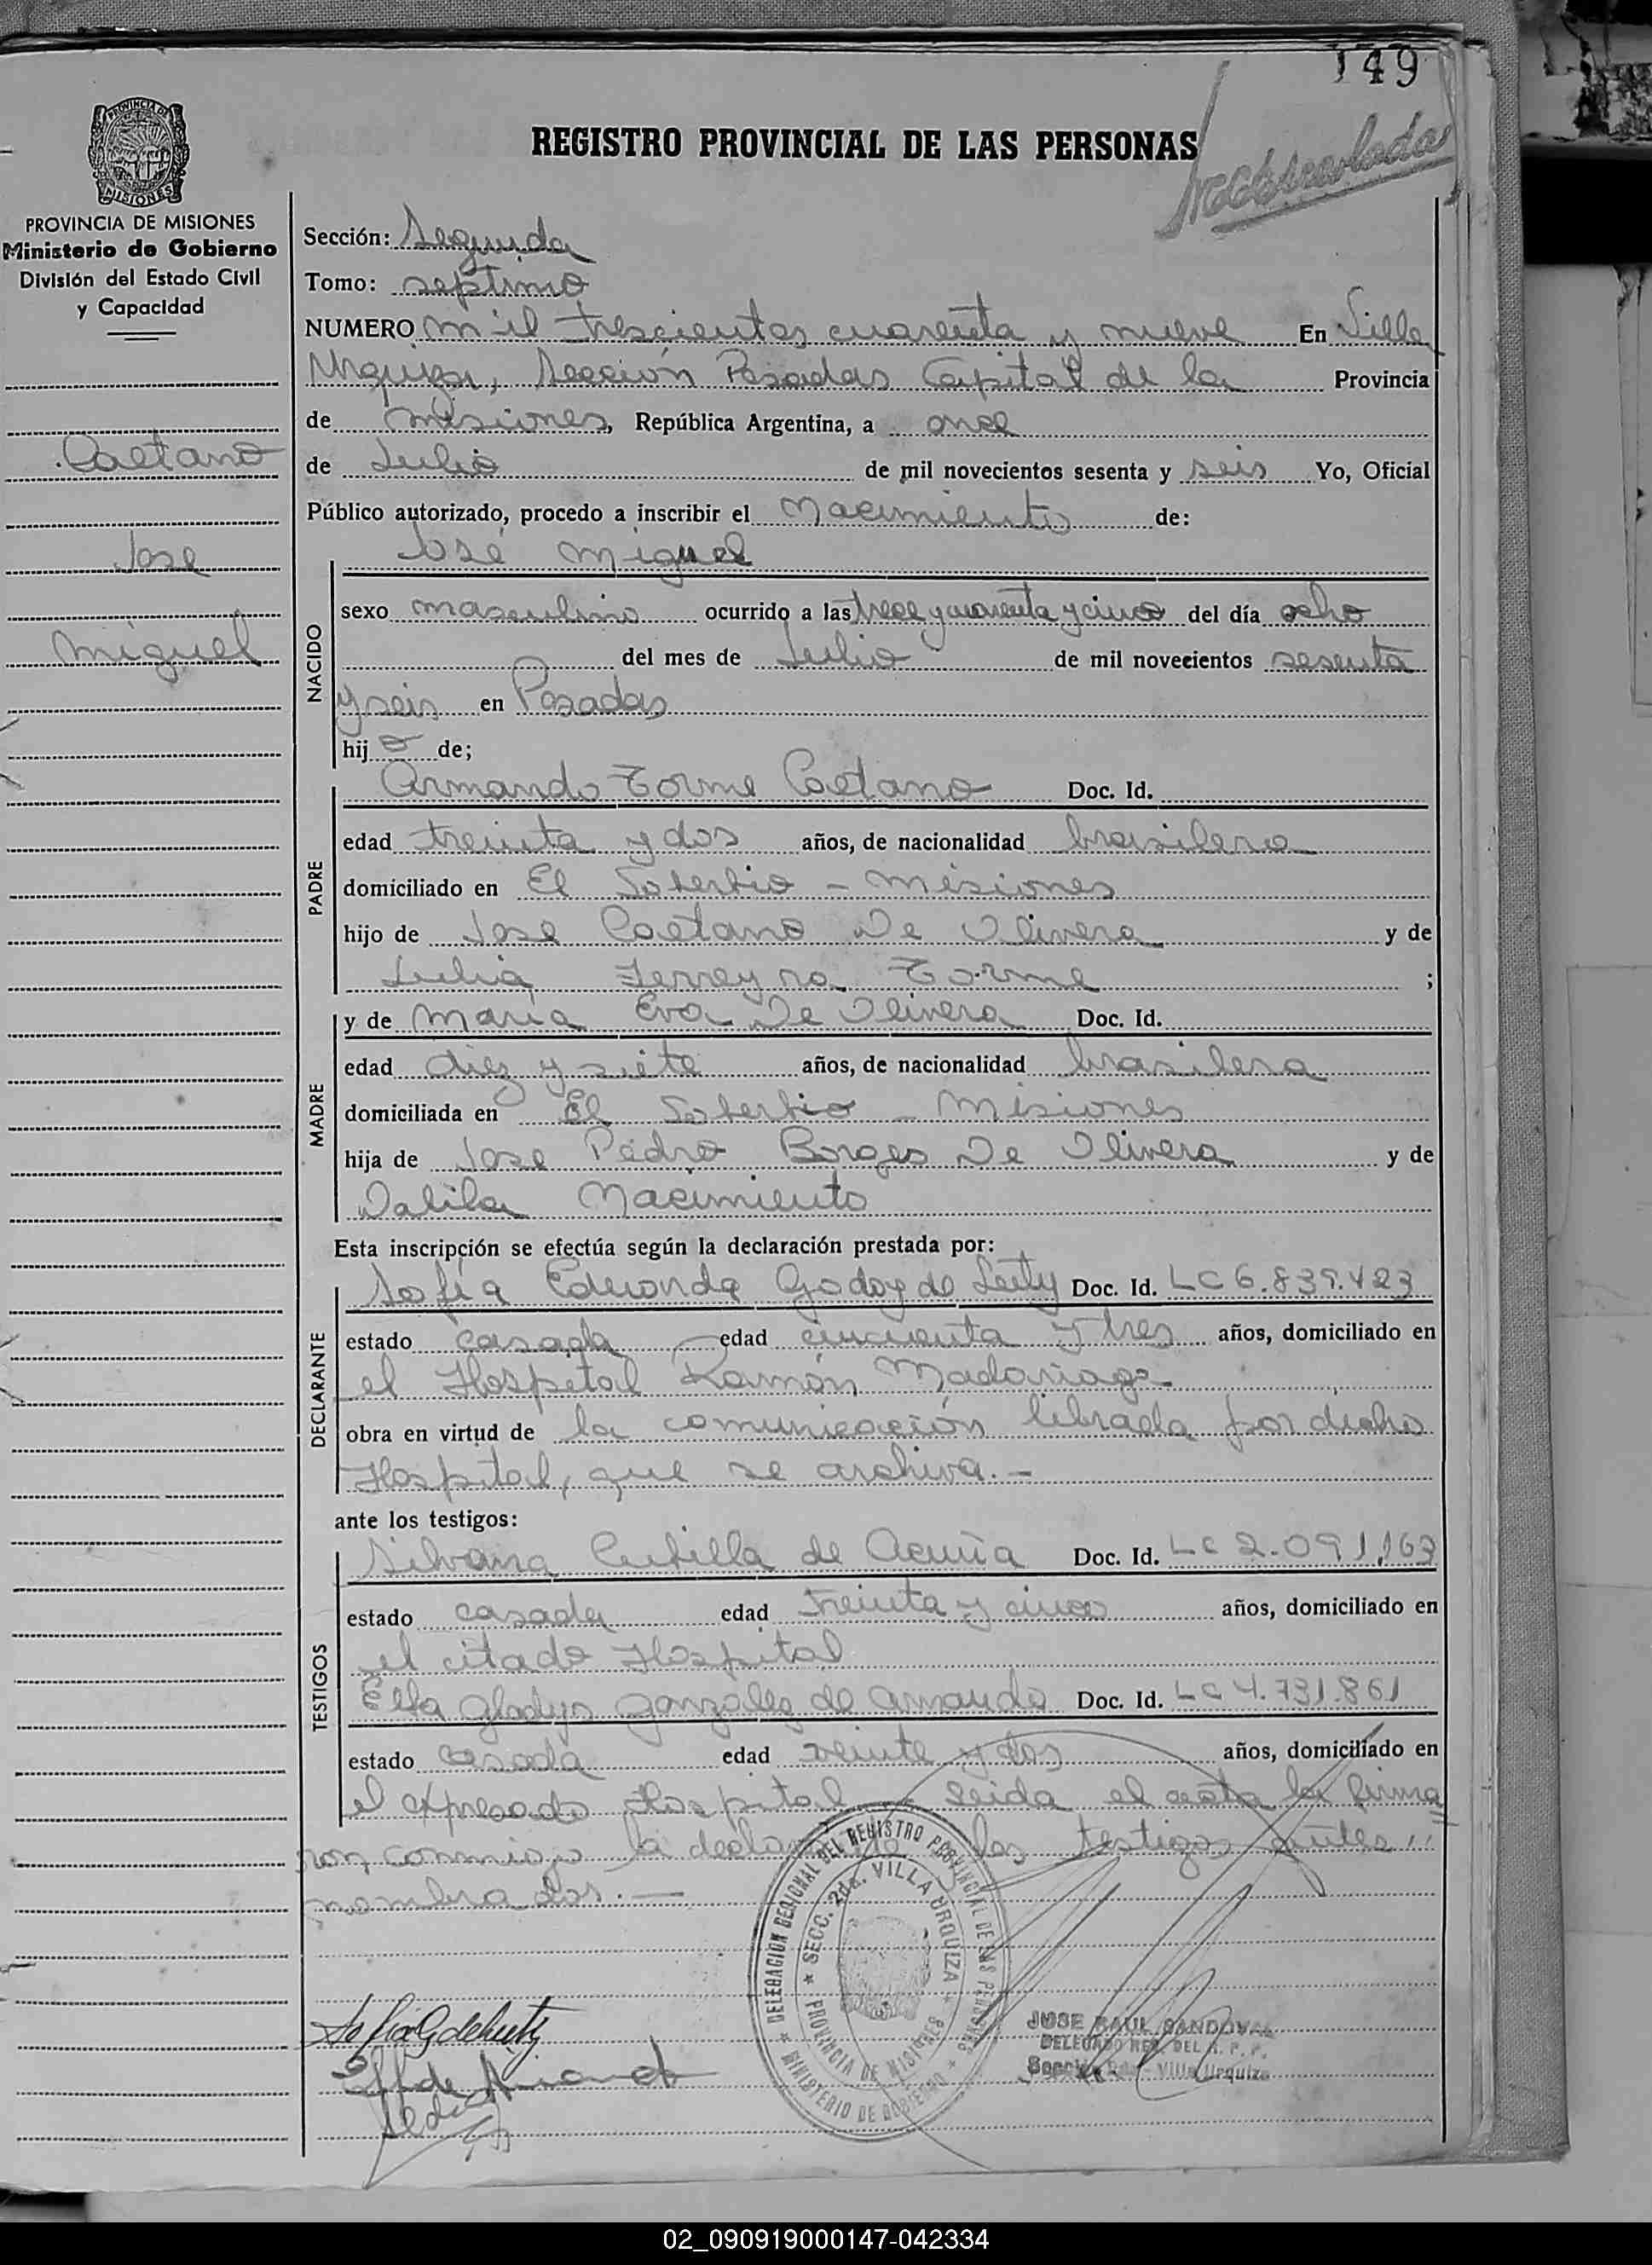 149
REGISTRO PROVINCIAL DE LAS PERSONAS
PROVINCIA DE MISIONES
Ministerio de Gobierno
División del Estado Civil
y Capacidad
Caetano
Jose
Miguel
Sección: Segunda
Tomo: septimo
NUMERO mil trescientos cuarenta y nueve En Villa
Urquiza, Sección Posadas Capital de la Provincia
de Misiones, República Argentina, a once
de Julio de mil novecientos sesenta y seis Yo, Oficial
Público autorizado, procedo a inscribir el Nacimiento de:
José Miguel
NACIDO
sexo masculino ocurrido a las trece y cuarenta y cinco del día ocho
del mes de Julio de mil novecientos sesenta
y seis en Posadas
hij o de;
PADRE
Armando Torme Caetano Doc. Id.
edad treinta y dos años, de nacionalidad brasilera
domiciliado en El Soberbio - Misiones
hijo de Jose Caetano De Olivera y de
Julia Ferreyra Torme ;
MADRE
y de Maria Eva De Olivera Doc. Id.
edad diez y siete años, de nacionalidad brasilera
domiciliada en El Soberbio - Misiones
hija de Jose Pedro Borges De Olivera y de
Dalila Nacimiento
Esta inscripción se efectúa según la declaración prestada por:
DECLARANTE
Sofía Edmonda Godoy de Doc. Id. LC 6.839.423
estado casada edad cincuenta y tres años, domiciliado en
el Hospital Ramón Madariaga
obra en virtud de la comunicación librada por dicho
Hospital, que se archiva. -
ante los testigos:
TESTIGOS
Silvana Cubilla de Acuña Doc. Id. LC 2.091.163
estado casada edad treinta y cinco años, domiciliado en
el citado Hospital
Elfa Gladys Gonzalez de Doc. Id. LC 4.731.861
estado casada edad veinte y dos años, domiciliado en
el expresado Hospital Leida el acta la firma=
ron conmigo la declarante los testigos antes
nombrados. —
DELEGACION REGIONAL DEL REGISTRO PROVINCIAL DE LAS PERSONAS
MINISTERIO DE GOBIERNO
SECC. 2da. VILLA URQUIZA
PROVINCIA DE MISIONES
JOSE RAUL SANDOVAL
DELEGADO REG. DEL R. P. P.
Sección 2da - Villa Urquiza
02_090919000147-042334